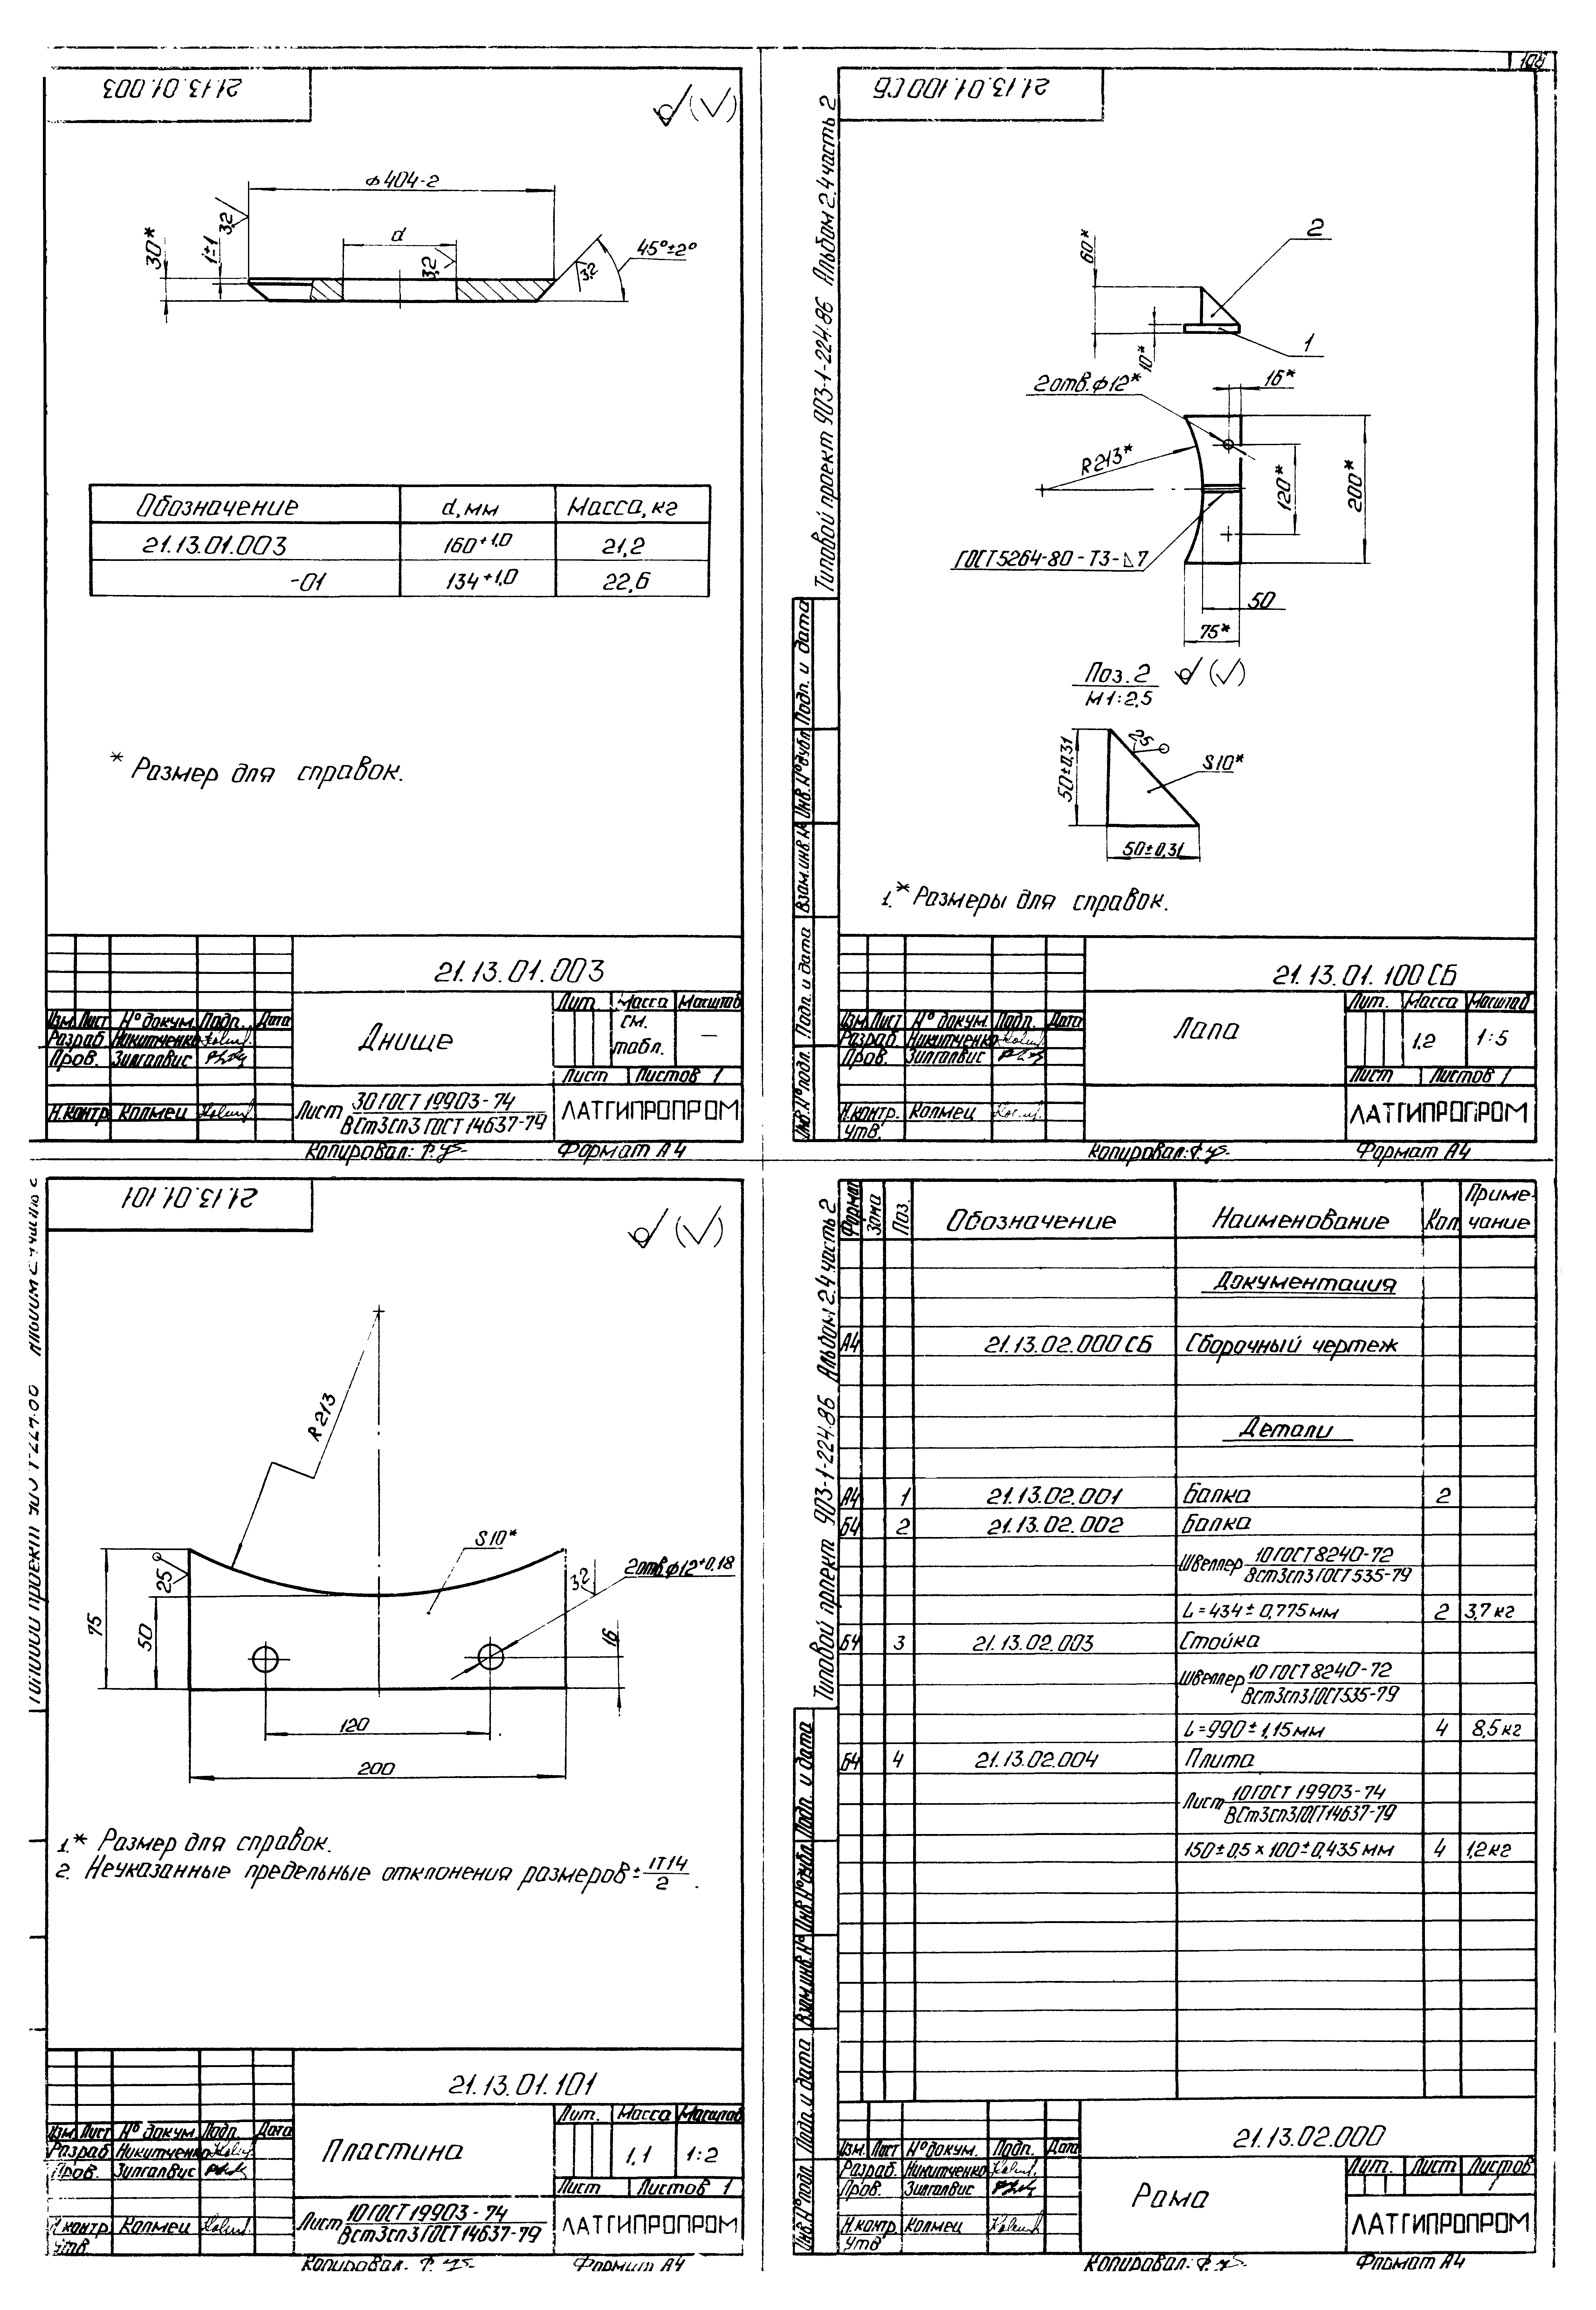 108
21.13.01.003
⌀404-2
30*
1±1
3,2
d
3,2
3,2
45°±2°
Обозначение d, мм Масса, кг
21.13.01.003 160+1,0 21,2
-01 134+1,0 22,6
* Размер для справок.
21.13.01.003
Лит. Масса Масштаб
Изм. Лист №докум. Подп. Дата
Днище
см. табл. —
Разраб Никитченко
Пров. Зилгалвис
Лист Листов 1
Н.контр Колмец
Лист 30 ГОСТ 19903-74
ВСт3сп3 ГОСТ 14637-79
ЛАТГИПРОПРОМ
Копировал: Формат А4
21.13.01.100 СБ
Типовой проект 903-1-224.86 Альбом 2.4 часть 2
60*
10*
2
1
2 отв. ⌀12*
16*
R213*
120*
200*
ГОСТ 5264-80-Т3-⊿7
50
75*
Поз. 2
М 1:2,5
50±0,31
25
S10*
50±0,31
1.* Размеры для справок.
Инв.№подл. Подп. и дата Взам.инв.№ Инв.№дубл. Подп. и дата
21.13.01.100 СБ
Лит. Масса Масштаб
Изм. Лист №докум. Подп. Дата
Лапа
1,2 1:5
Разраб Никитченко
Пров. Зилгалвис
Лист Листов 1
Н.контр. Колмец
Утв.
ЛАТГИПРОПРОМ
Копировал: Формат А4
21.13.01.101
R213
S10*
2отв.⌀12+0,18
3,2
25
75
50
16
120
200
1.* Размер для справок.
2. Неуказанные предельные отклонения размеров ± IT14/2.
21.13.01.101
Лит. Масса Масштаб
Изм. Лист №докум. Подп. Дата
Пластина
1,1 1:2
Разраб Никитченко
Пров. Зилгалвис
Лист Листов 1
Н.контр Колмец
Утв.
Лист 10 ГОСТ 19903-74
ВСт3сп3 ГОСТ 14637-79
ЛАТГИПРОПРОМ
Копировал. Формат А4
Типовой проект 903-1-224.86 Альбом 2.4 часть 2
Формат Зона Поз. Обозначение Наименование Кол. Примечание
Документация
А4 21.13.02.000 СБ Сборочный чертеж
Детали
А4 1 21.13.02.001 Балка 2
Б4 2 21.13.02.002 Балка
Швеллер 10 ГОСТ 8240-72
Вст3сп3 ГОСТ 535-79
L=434±0,775 мм 2 3,7 кг
Б4 3 21.13.02.003 Стойка
Швеллер 10 ГОСТ 8240-72
ВСт3сп3 ГОСТ 535-79
L=990±1,15 мм 4 8,5 кг
Б4 4 21.13.02.004 Плита
Лист 10 ГОСТ 19903-74
ВСт3сп3 ГОСТ 14637-79
150±0,5×100±0,435 мм 4 1,2 кг
Инв.№подл. Подп. и дата Взам.инв.№ Инв.№дубл. Подп. и дата
21.13.02.000
Изм. Лист №докум. Подп. Дата
Разраб. Никитченко
Пров. Зилгалвис
Рама
Лит. Лист Листов
1
Н.контр. Колмец
Утв
ЛАТГИПРОПРОМ
Копировал: Формат А4